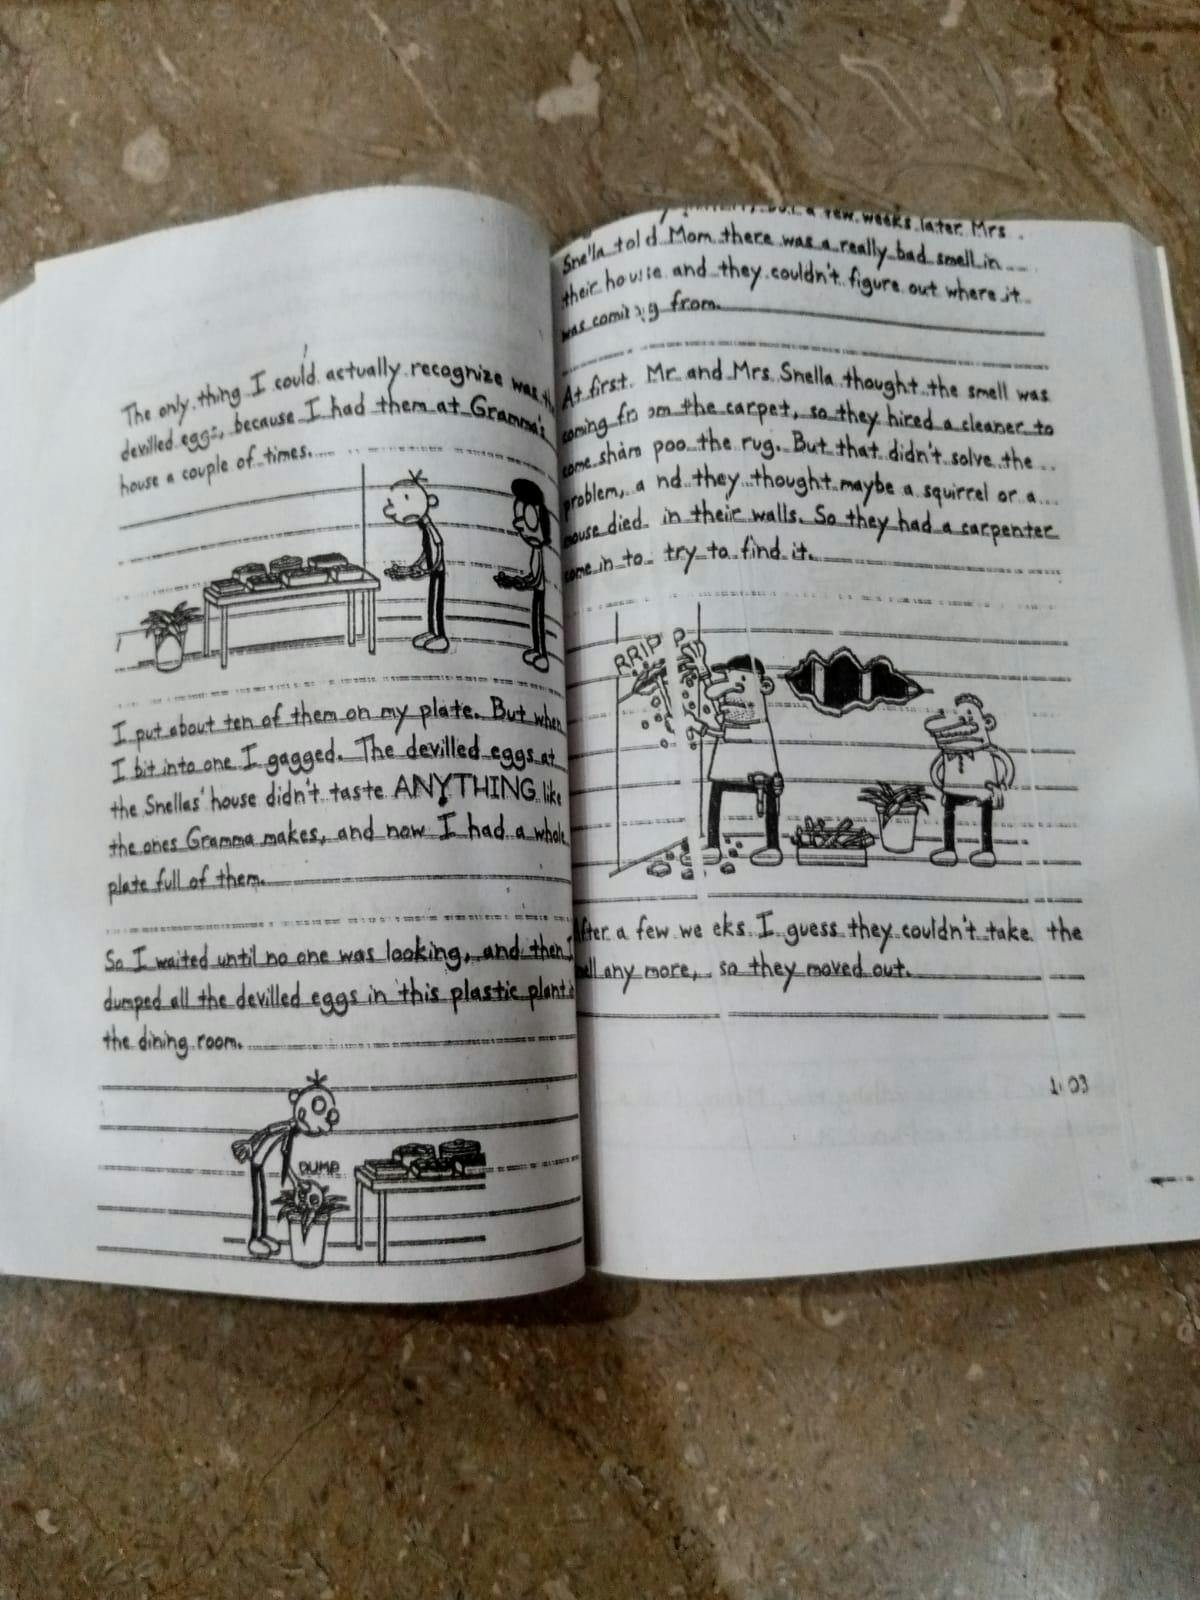 The only thing I could actually recognize was
devilled eggs, because I had them at Gramma's
house a couple of times.
I put about ten of them on my plate. But when
I bit into one I gagged. The devilled eggs at
the Snellas' house didn't taste ANYTHING like
the ones Gramma makes, and now I had a whole
plate full of them.
So I waited until no one was looking, and then I
dumped all the devilled eggs in this plastic plant
the dining room.
DUMP
but a few weeks later Mrs
Snella told Mom there was a really bad smell in
their house and they couldn't figure out where it
was coming from.
At first Mr. and Mrs. Snella thought the smell was
coming from the carpet, so they hired a cleaner to
come sham poo the rug. But that didn't solve the
problem, a nd they thought maybe a squirrel or a
mouse died in their walls. So they had a carpenter
come in to try to find it.
RRIP P
After a few we eks I guess they couldn't take the
smell any more, so they moved out.
103